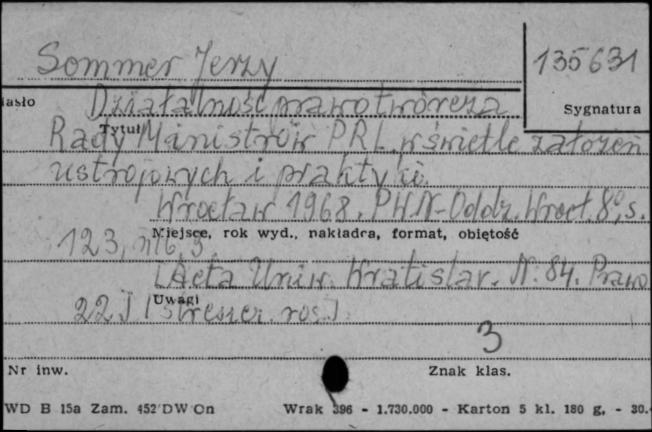 Sommer Jerzy
135631
Hasło
Działalność prawotwórcza
Sygnatura
Tytuł
Rady Ministrów PRL w świetle założeń
ustrojowych i praktyki.
Wrocław 1968. PWN-Oddz. Wrocł. 8°, s.
Miejsce, rok wyd., nakładra, format, objętość
123, nlb. 3
[Acta Univ. Wratislav. N. 84. Prawo
Uwagi
22] [streszcz. ros.]
3
Nr inw.
Znak klas.
WD B 15a Zam. 452 DW On Wrak 396 - 1.730.000 - Karton 5 kl. 180 g, - 30.